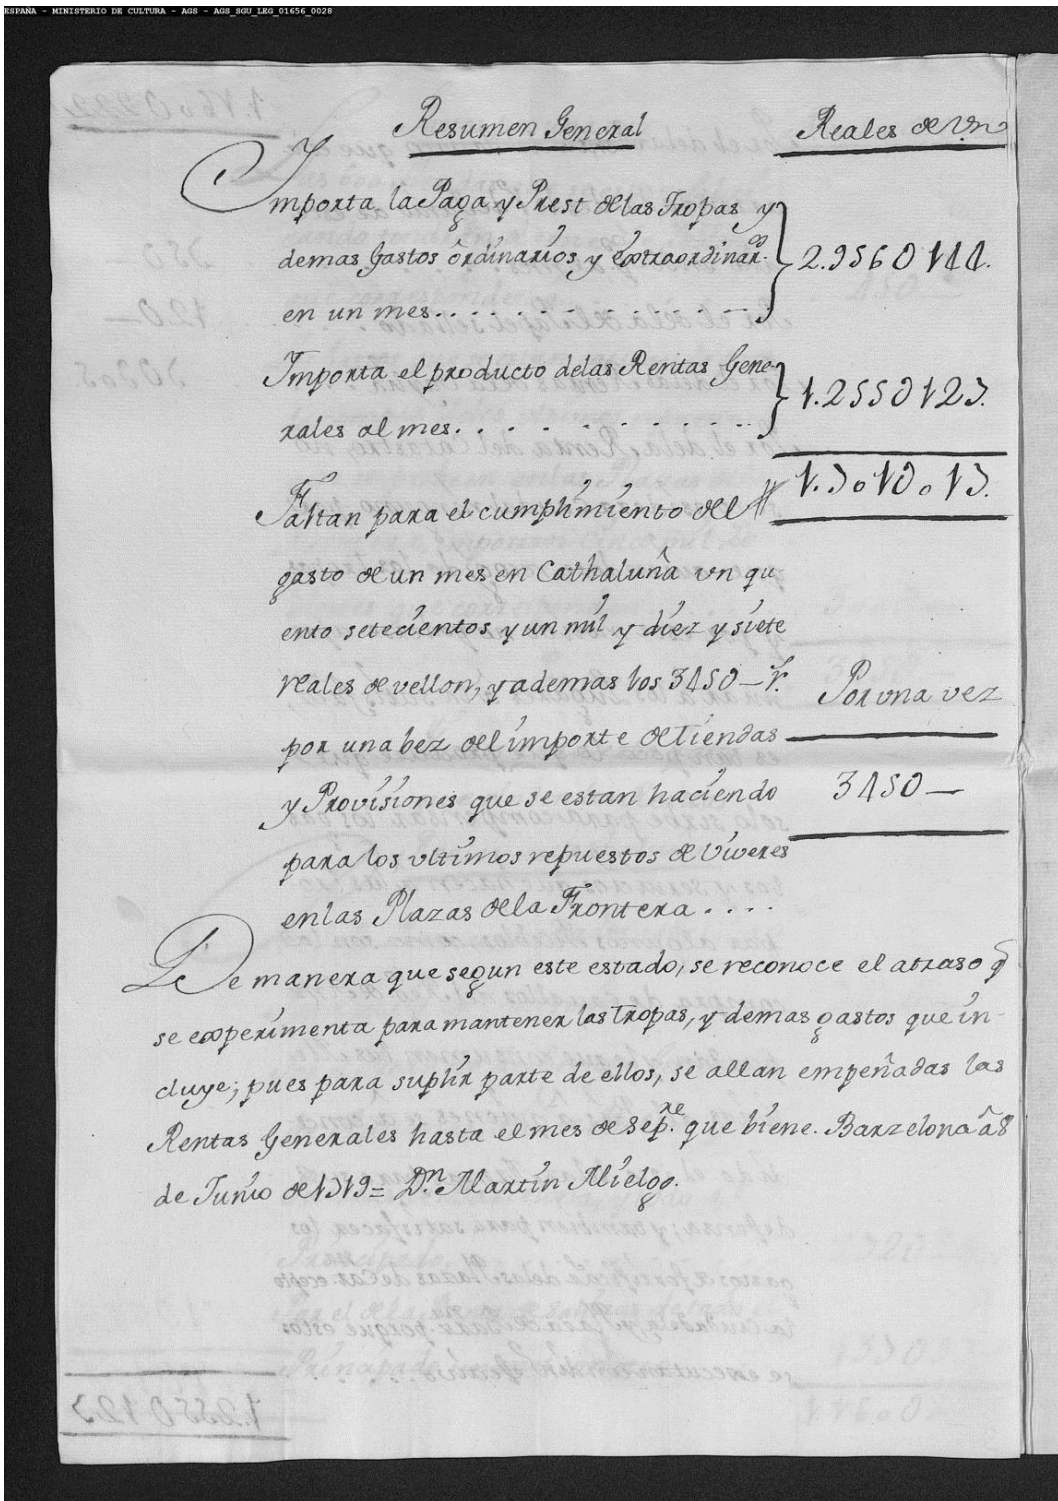 ESPAÑA - MINISTERIO DE CULTURA - AGS - AGS_SGU_LEG_01656_0028
Resumen General
Reales de Vn
Importa la Paga y Prest de las Tropas y
demas Gastos ôrdinarios y extraordinar.os
en un mes. . . . . . . . . . . . . .
2.956 144.
Importa el producto delas Rentas Gene-
rales al mes. . . . . . . . . . . .
1.255 127.
1.701 017.
Faltan para el cumplimiento del
gasto de un mes en Cathaluña vn qu
ento setecientos y un mil y diez y siete
reales de vellon, y ademas los 345 — r.s
por una bez del importe de Tiendas
y Provisiones que se estan haciendo
para los vltimos repuestos de Viveres
en las Plazas de la Frontera . . . .
Por vna vez
345 —
De manera que segun este estado, se reconoce el atraso q
se experimenta para mantener las Tropas, y demas gastos que in-
cluye; pues para suplir parte de ellos, se allan empeñadas las
Rentas Generales hasta el mes de Sep.re que biene. Barzelona â 8
de Junio de 1719 = D.n Martin Mielgo.